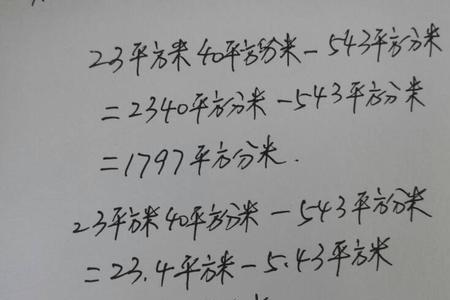 23平方米40平方分米-543平方分米
=2340平方分米-543平方分米
=1797平方分米.
23平方米40平方分米-543平方分米
=23.4平方米-5.43平方米